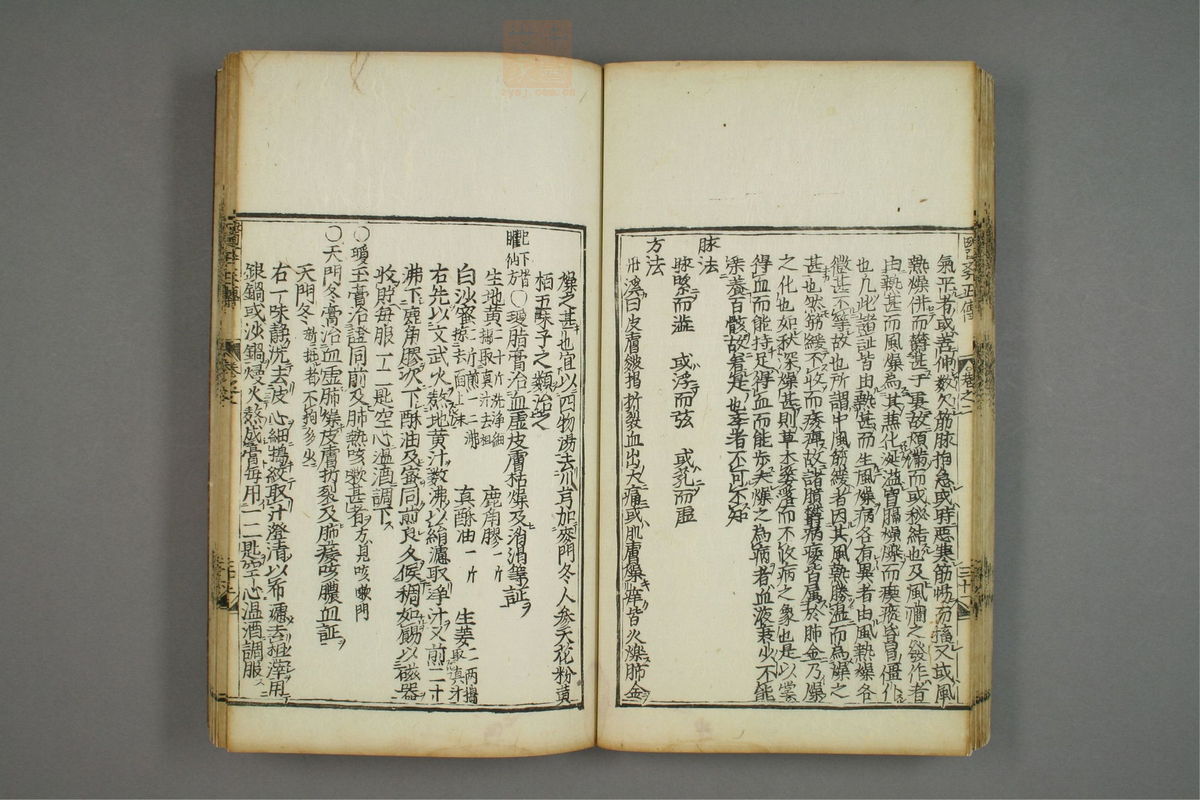 醫學正傳 卷之二 三十
氣平者或善伸數欠筋脉拘急或時惡寒筋惕而搐又或風
熱燥併而鬱甚于裏故煩滿而或秘結也及風癇之發作者
由熱甚而風燥爲其兼化涎溢胷膈燥爍而瘈瘲昏冒僵仆
也凡此諸証皆由熱甚而生風燥病各有異者由風熱燥各
微甚不等故也所謂中風筋緩者因其風熱勝湿而為燥之
甚也然筋緩不收而痿痺故諸膹鬱病痿皆属於肺金乃燥
之化也如秋深燥甚則草木萎落而不收病之象也是以掌
得血而能持足得血而能歩夫燥之為病者血液衰少不能
榮養百骸故若是也孝者不可不知
脉法
脉緊而澁 或浮而弦 或芤而虚
方法
丹溪曰皮膚皴揭折裂血出大痛或肌膚燥痒皆火燥肺金
燥之甚也宜以四物湯去川芎加麥門冬人参天花粉黄
栢五味子之類治之
已下皆臞仙方
○瓊脂膏治血虚皮膚枯燥及消渴等証
生地黄二十斤洗浄細搗取真汁去柤 鹿角膠一斤
白沙蜜一斤煎一二沸掠去面上沫 真酥油一斤 生姜二两搗取真汁
右先以文武火熬地黄汁数沸以絹濾取浄汁又煎二十
沸下鹿角膠次下酥油及蜜同煎良久候稠如餳以磁器
收貯毎服一二匙空心温酒調下
○瓊玉膏治證同前及肺熱咳嗽甚者方見咳嗽門
○天門冬膏治血虚肺燥皮膚折裂及肺痿咳膿血証
天門冬新掘者不拘多少
右一味静洗去皮心細搗絞取汁澄清以布濾去柤滓用
銀鍋或沙鍋熳火熬成膏毎用一二匙空心温酒調服